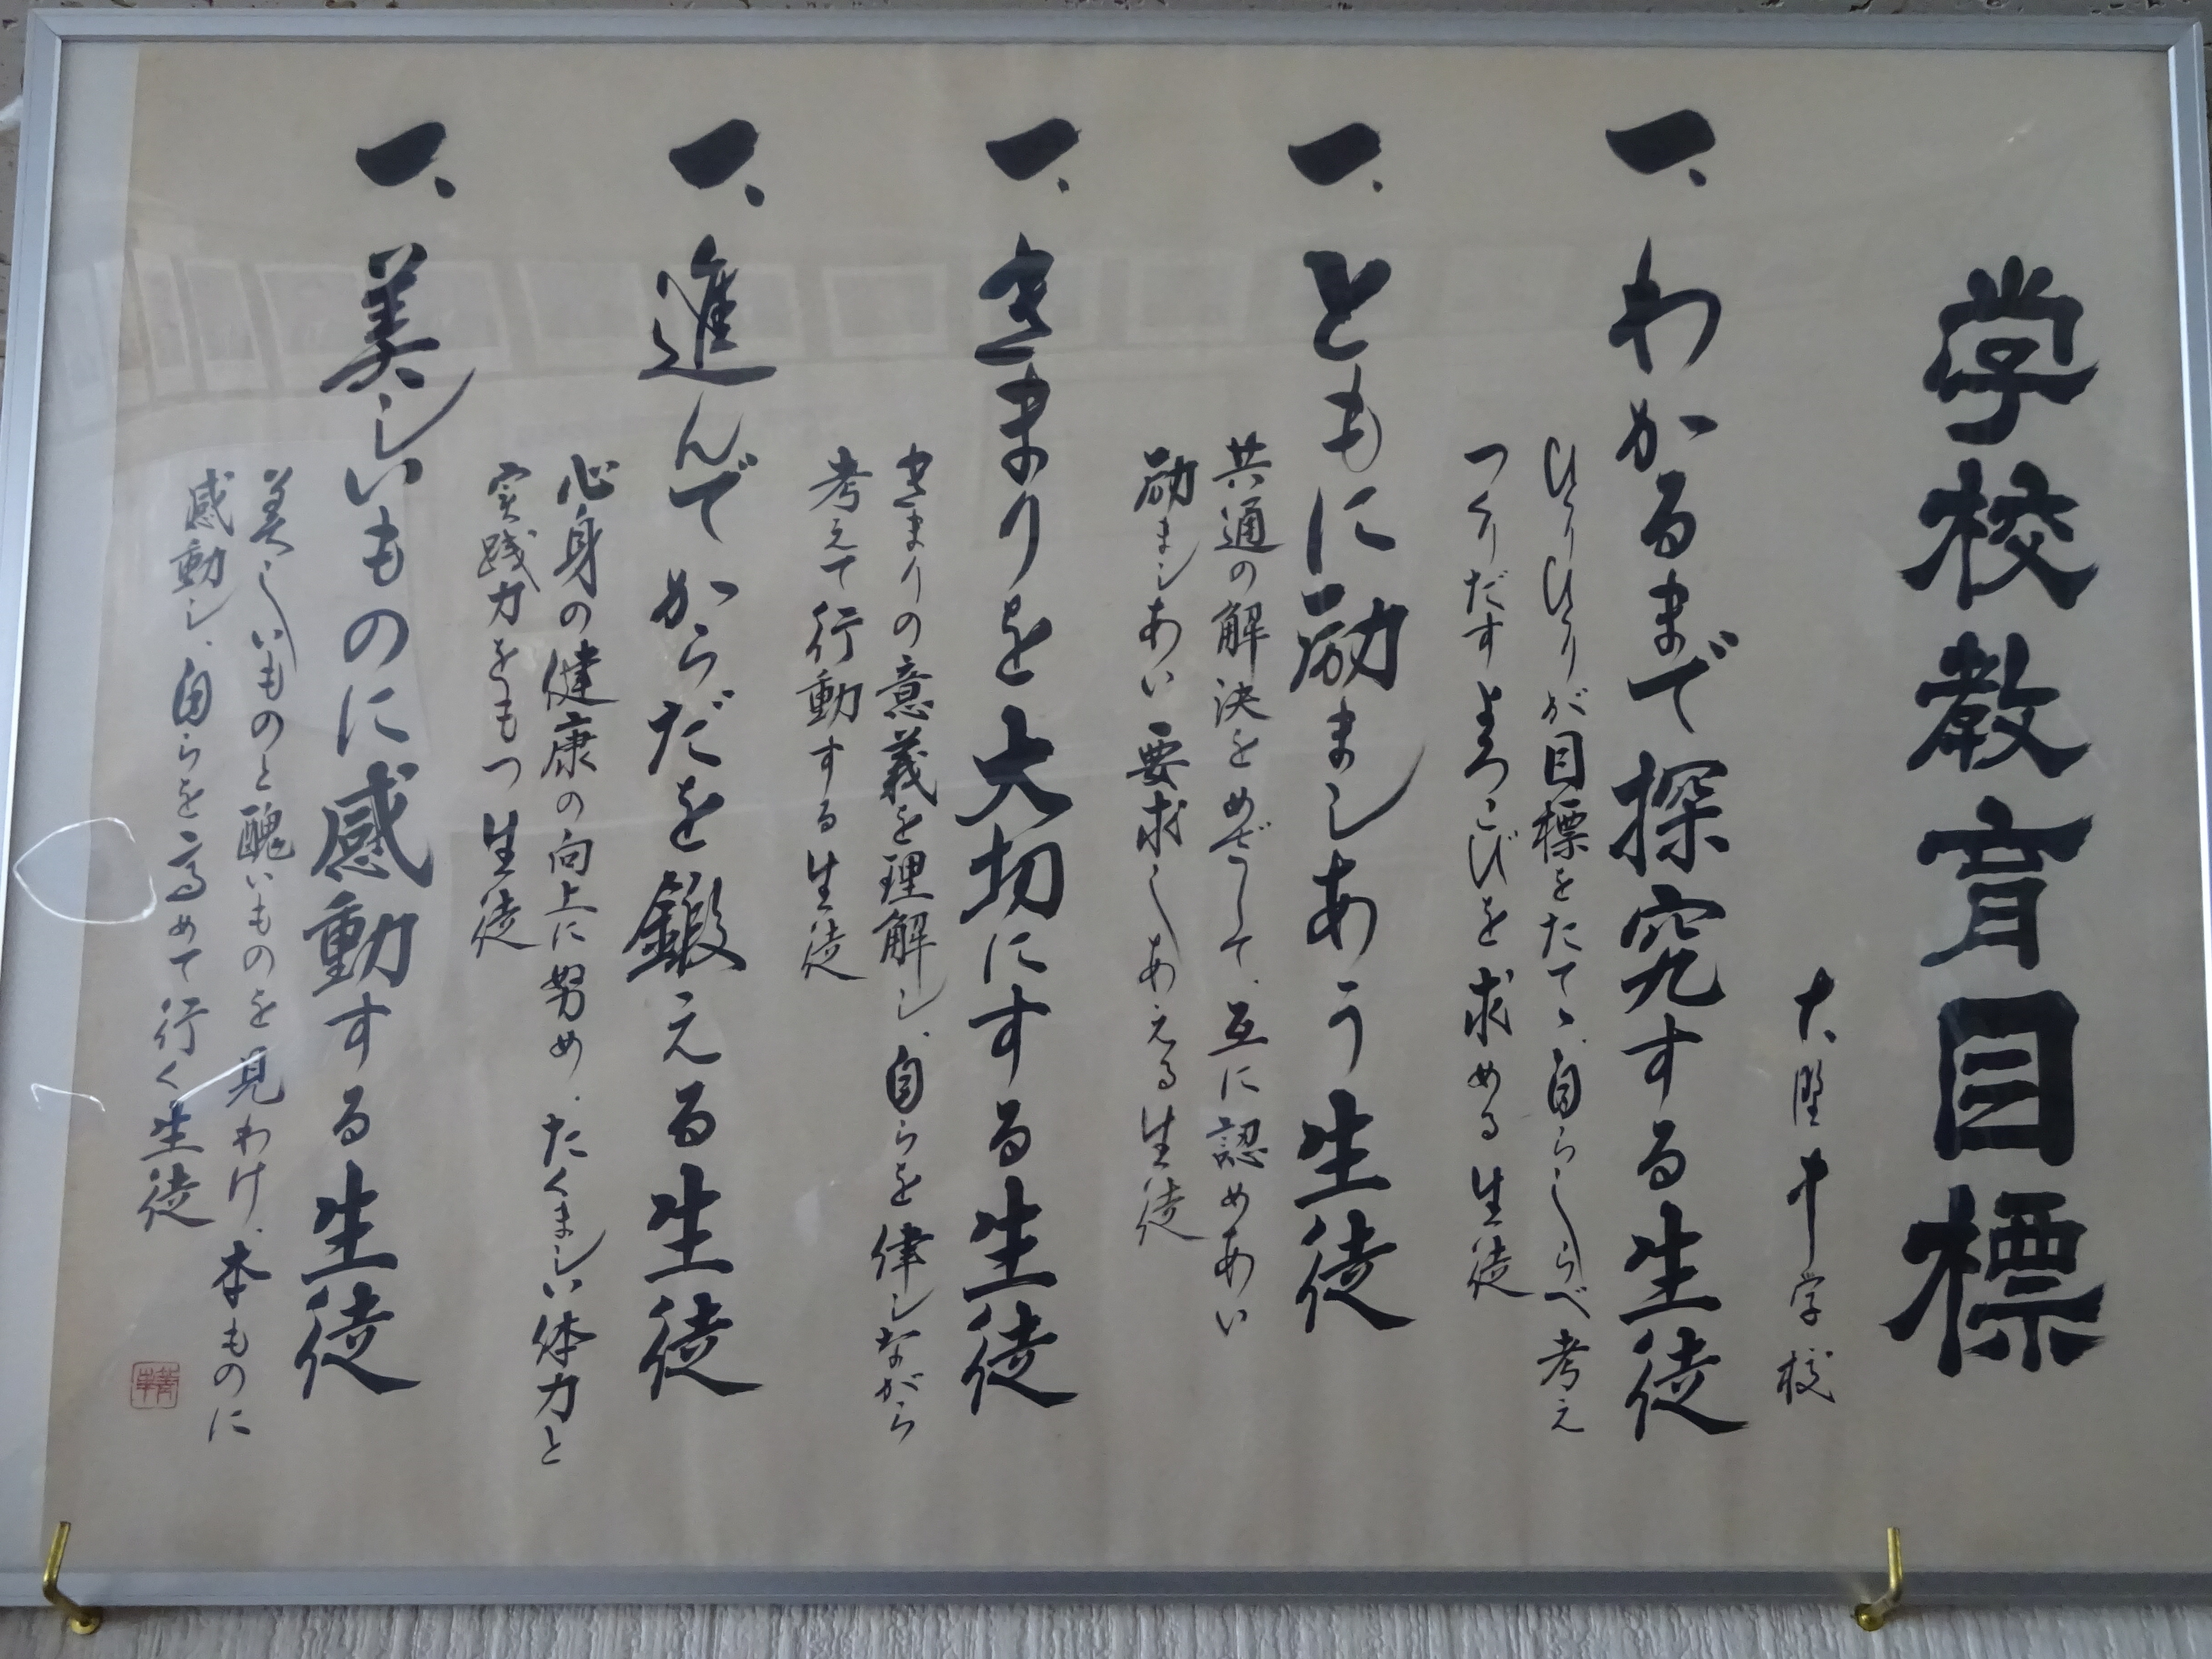 学校教育目標
中学校
一、わかるまで探究する生徒
ひとりひとりが目標をたて、自らしらべ考え
つくりだすよろこびを求める生徒
一、ともに励ましあう生徒
共通の解決をめざして、互に認めあい
励ましあい要求しあえる生徒
一、きまりを大切にする生徒
きまりの意義を理解し、自らを律しながら
考えて行動する生徒
一、進んでからだを鍛える生徒
心身の健康の向上に努め、たくましい体力と
実践力をもつ生徒
一、美しいものに感動する生徒
美しいものと醜いものを見わけ、本ものに
感動し、自らを高めて行く生徒